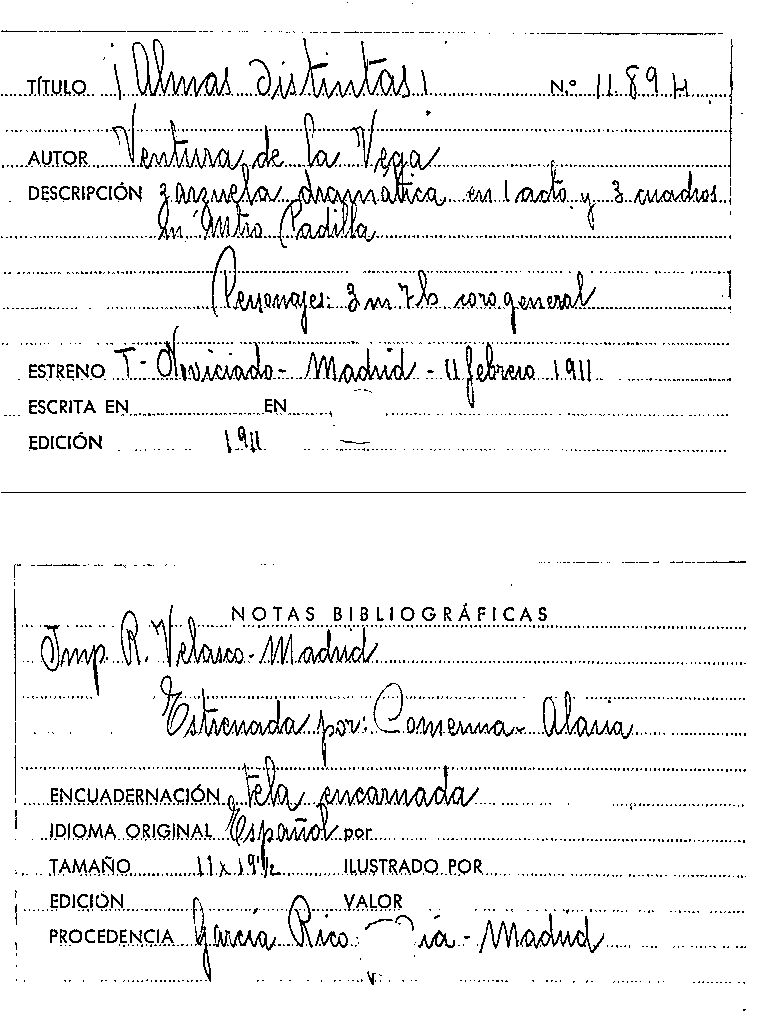 TÍTULO ¡Almas distintas! N.º 11894
AUTOR Ventura de la Vega
DESCRIPCIÓN zarzuela dramática en 1 acto y 3 cuadros
m Mtro Padilla
Personajes: 3 m 7 h coro general
ESTRENO T- Noviciado - Madrid - 11 febrero 1911
ESCRITA EN EN
EDICIÓN 1911
NOTAS BIBLIOGRÁFICAS
Imp. R. Velasco - Madrid
Estrenada por:
ENCUADERNACIÓN tela encarnada
IDIOMA ORIGINAL Español por
TAMAÑO ILUSTRADO POR
EDICIÓN VALOR
PROCEDENCIA García Rico ía - Madrid